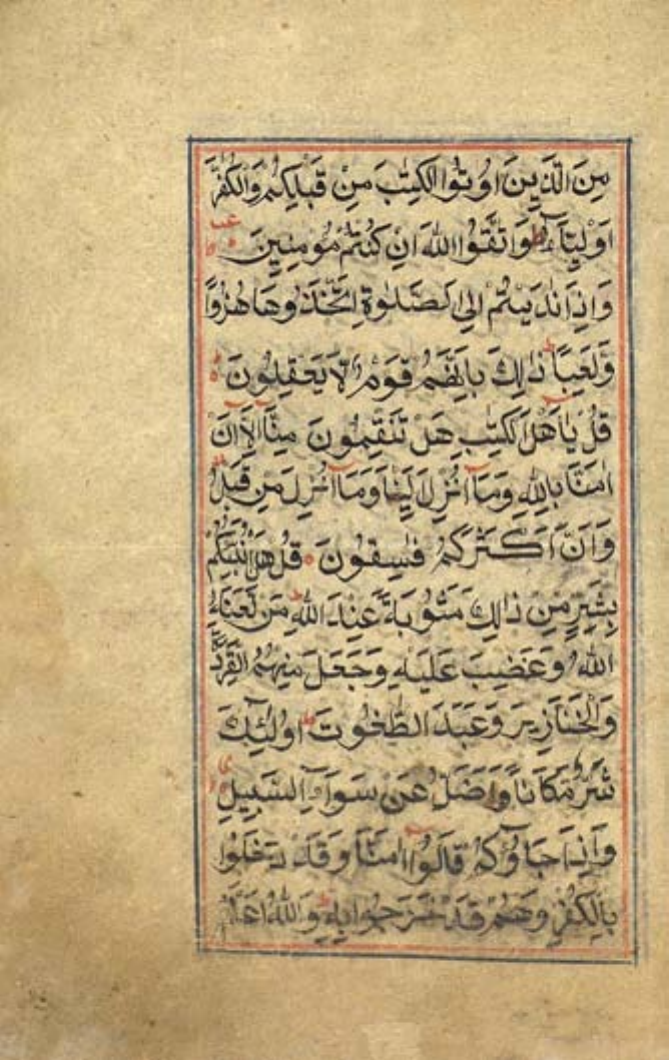 مِنَ الَّذِينَ اُوتُوا الكِتٰبَ مِنْ قَبْلِكُمْ وَالكُفَّ
اَوْلِيَآءَ وَاتَّقُوا اللهَ اِنْ كُنْتُمْ مُؤمِنِينَ
وَاِذَا نَادَيْتُمْ اِلَى الصَّلٰوةِ اتَّخَذُوهَا هُزُوًا
وَلَعِبًا ذٰلِكَ بِاَنَّهُمْ قَوْمٌ لَا يَعْقِلُونَ
قُلْ يٰاَهْلَ الكِتٰبِ هَلْ تَنْقِمُونَ مِنَّا اِلَّا اَنْ
اٰمَنَّا بِاللهِ وَمَا اُنْزِلَ اِلَيْنَا وَمَا اُنْزِلَ مِنْ قَبْلُ
وَاَنَّ اَكْثَرَكُمْ فٰسِقُونَ قُلْ هَلْ اُنَبِّئُكُمْ
بِشَرٍّ مِنْ ذٰلِكَ مَثُوبَةً عِنْدَ اللهِ مَنْ لَعَنَهُ
اللهُ وَغَضِبَ عَلَيْهِ وَجَعَلَ مِنْهُمُ القِرَدَةَ
وَالْخَنَازِيرَ وَعَبَدَ الطَّاغُوتَ اُولٰئِكَ
شَرٌّ مَكَانًا وَاَضَلُّ عَنْ سَوَآءِ السَّبِيلِ
وَاِذَا جَاؤُكُمْ قَالُوا اٰمَنَّا وَقَدْ دَخَلُوا
بِالكُفْرِ وَهُمْ قَدْ خَرَجُوا بِهِ وَاللهُ اَعْلَمُ